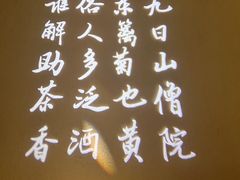 九日山僧院
东篱菊也黄
俗人多泛酒
谁解助茶香